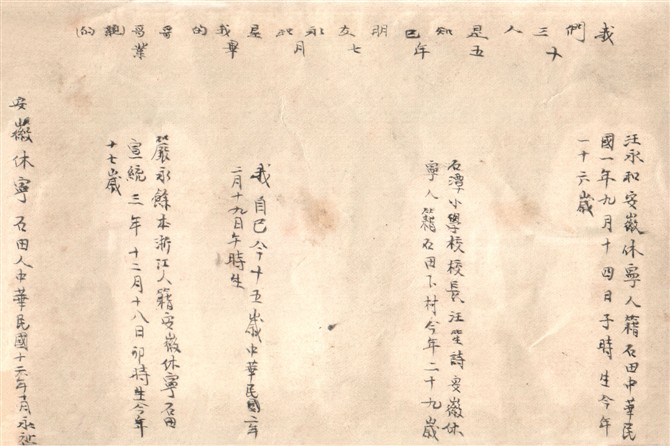 我們三人是知己明友永和是我的哥哥親的
十五年七月畢業
汪永和安徽休寧人籍石田中華民
國一年九月十四日子時生今年
一十六歲
石潭小學校校長汪笙詩安徽休
寧人籍石田下村今年二十九歲
我自己今十五歲中華民國二年
二月十九日午時生
嚴永餘本浙江人籍安徽休寧石田
宣統三年十二月十八日卯時生今年
十七歲
安徽休寧石田人中華民國十六年月永